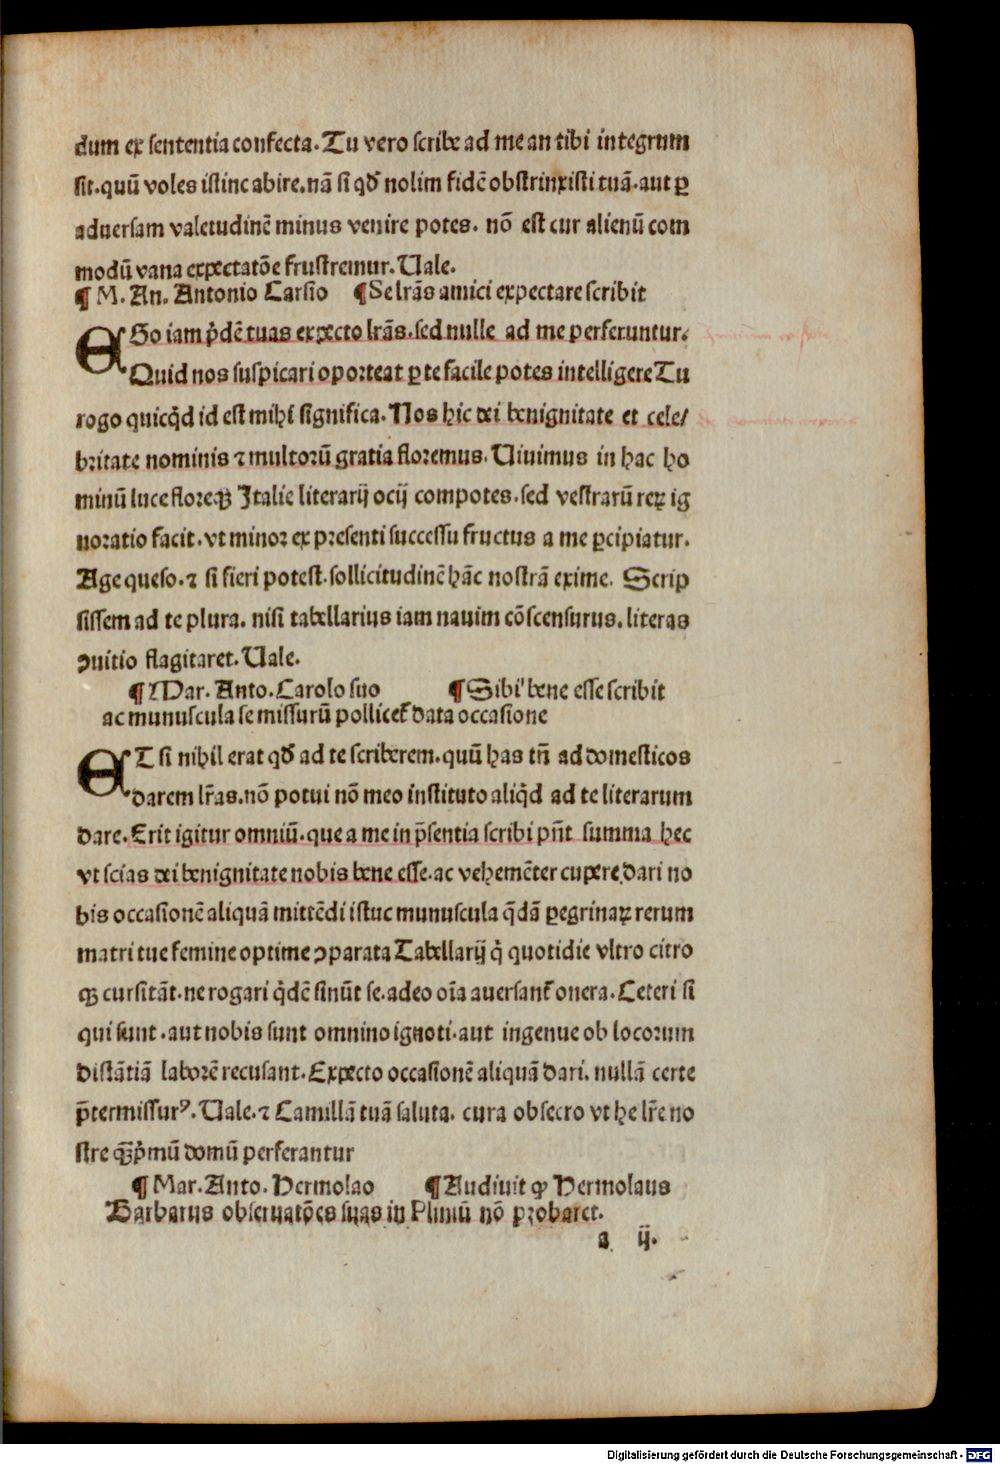 dum ex sententia confecta. Tu vero scribe ad me an tibi integrum
sit. quū voles istinc abire. nā si qđ nolim fidē obstrinxisti tuā. aut ꝑ
aduersam valetudinē minus venire potes. nō est cur alienū com
modū vana expectatōe frustremur. Uale.
¶ M. An. Antonio Carsio ¶ Se lr̄as amici expectare scribit
EGo iam p̄dē tuas expecto lr̄as. sed nulle ad me perferuntur.
Quid nos suspicari oporteat ꝑ te facile potes intelligere Tu
rogo quicq̄d id est mihi significa. Nos hic dei benignitate et cele/
britate nominis ⁊ multorū gratia floremus. Uiuimus in hac ho
minū luce floreqꝫ Italie literarij ocij compotes. sed vestrarū reꝝ ig
noratio facit. vt minor ex presenti successu fructus a me ꝑcipiatur.
Age queso. ⁊ si fieri potest. sollicitudinē hāc nostrā exime. Scrip
sissem ad te plura. nisi tabellarius iam nauim cōscensurus. literas
ꝯuitio flagitaret. Uale.
¶ Mar. Anto. Carolo suo ¶ Sibi bene esse scribit
ac munuscula se missurū pollicet̄ data occasione
ETsi nihil erat qđ ad te scriberem. quū has tn̄ ad domesticos
darem lr̄as. nō potui nō meo instituto aliq̄d ad te literarum
dare. Erit igitur omniū. que a me in p̄sentia scribi pn̄t summa hec
vt scias dei benignitate nobis bene esse. ac vehemēter cupere, dari no
bis occasionē aliquā mittēdi istuc munuscula q̄dā ꝑegrinaꝝ rerum
matri tue femine optime ꝯparata Tabellarij q̄ quotidie vltro citro
qꝫ cursitāt. ne rogari q̄dē sinūt se. adeo oīa auersant̄ onera. Ceteri si
qui sunt. aut nobis sunt omnino ignoti. aut ingenue ob locorum
distātiā laborē recusant. Expecto occasionē aliquā dari. nullā certe
p̄termissurꝰ. Uale. ⁊ Camillā tuā saluta. cura obsecro vt he lr̄e no
stre qꝫp̄mū domū perferantur
¶ Mar. Anto. Hermolao ¶ Audiuit ꝙ Hermolaus
Barbarus obseruatōes suas in Pliniū nō probaret.
a ij.
Digitalisierung gefördert durch die Deutsche Forschungsgemeinschaft - DFG